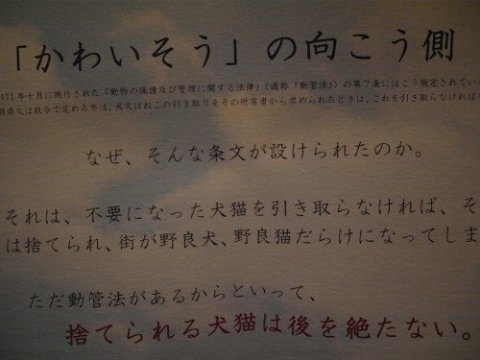 「かわいそう」の向こう側
年十月に施行された「動物の保護及び管理に関する法律」(通称「動管法」)の第7条にはこう規定されてい
県又は政令で定める市は、犬又はねこの引き取りをその所有者から求められたときは、これを引き取らなければ
なぜ、そんな条文が設けられたのか。
それは、不要になった犬猫を引き取らなければ、そ
は捨てられ、街が野良犬、野良猫だらけになってしま
ただ動管法があるからといって、
捨てられる犬猫は後を絶たない。